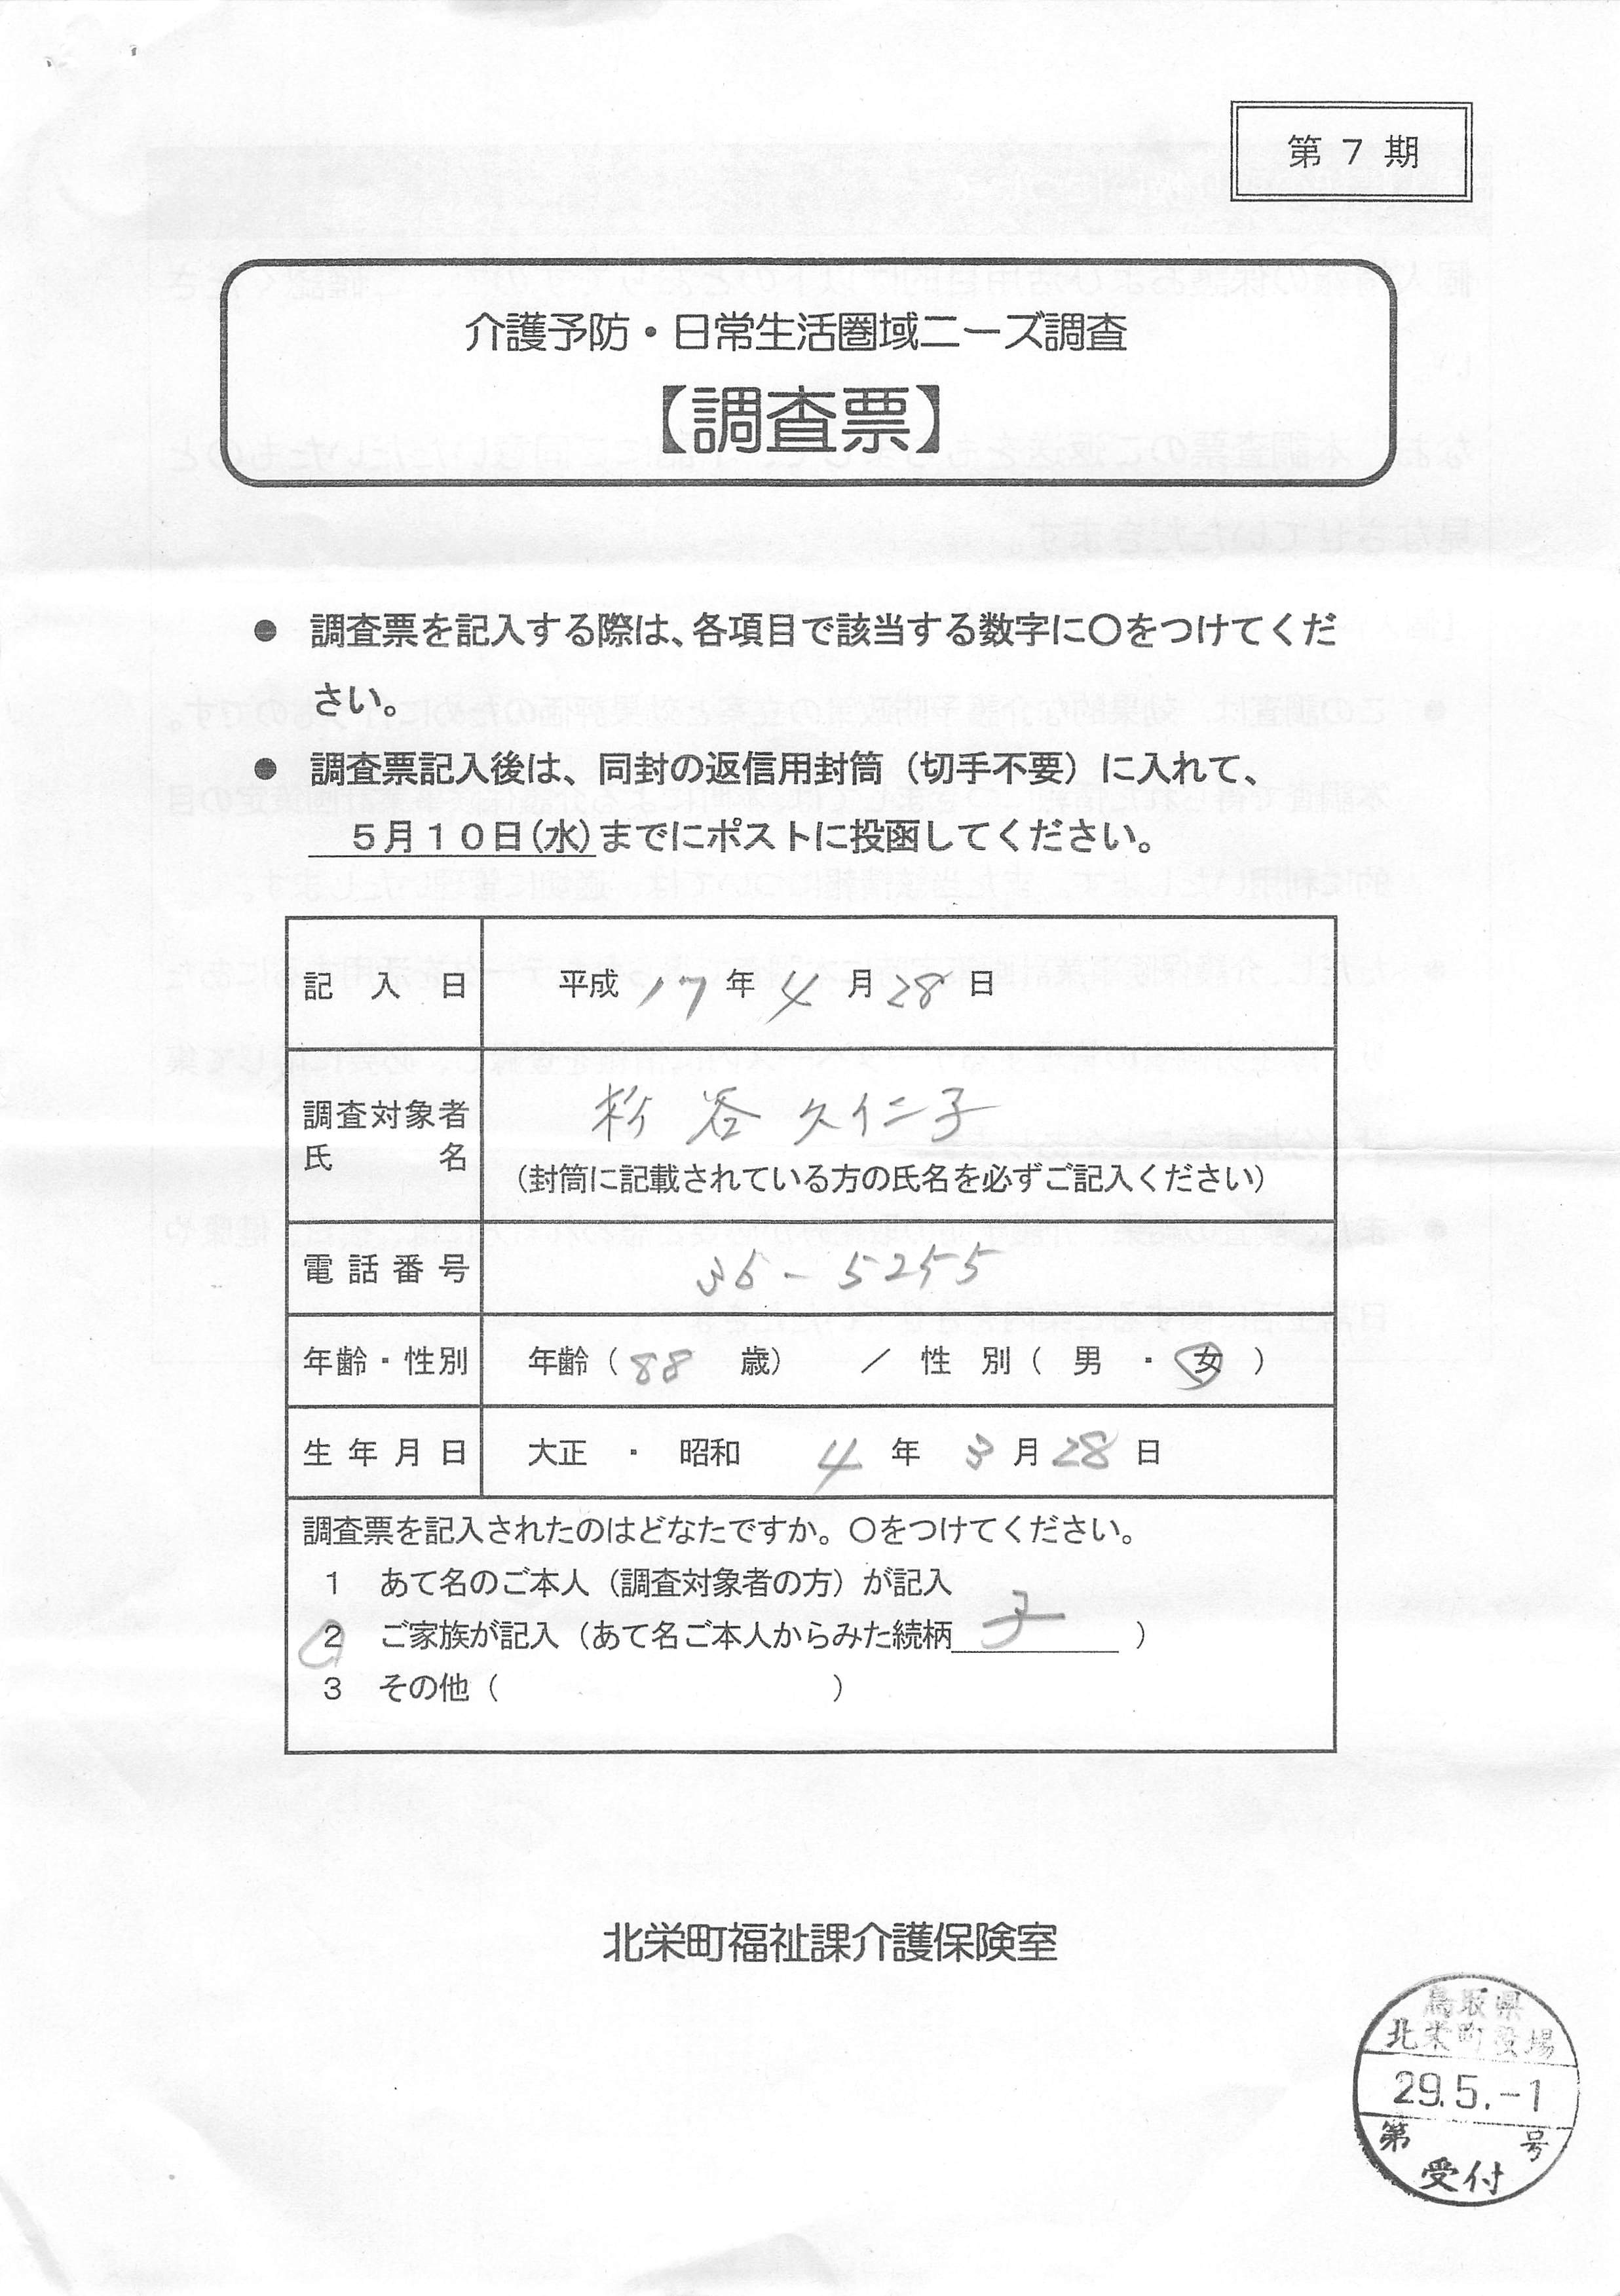 第 7 期
介護予防・日常生活圏域ニーズ調査
【調査票】
● 調査票を記入する際は、各項目で該当する数字に〇をつけてくだ
さい。
● 調査票記入後は、同封の返信用封筒（切手不要）に入れて、
５月１０日（水）までにポストに投函してください。
記入日 平成 17 年 4 月 28 日
調査対象者
氏名
杉谷 久仁子
（封筒に記載されている方の氏名を必ずご記入ください）
電話番号 36-5255
年齢・性別 年齢（ 88 歳） ／ 性別（ 男 ・ 女 ）
生年月日 大正 ・ 昭和 4 年 3 月 28 日
調査票を記入されたのはどなたですか。〇をつけてください。
1 あて名のご本人（調査対象者の方）が記入
2 ご家族が記入（あて名ご本人からみた続柄 子 ）
3 その他（ ）
北栄町福祉課介護保険室
鳥取県
北栄町役場
29.5.-1
第 号
受付